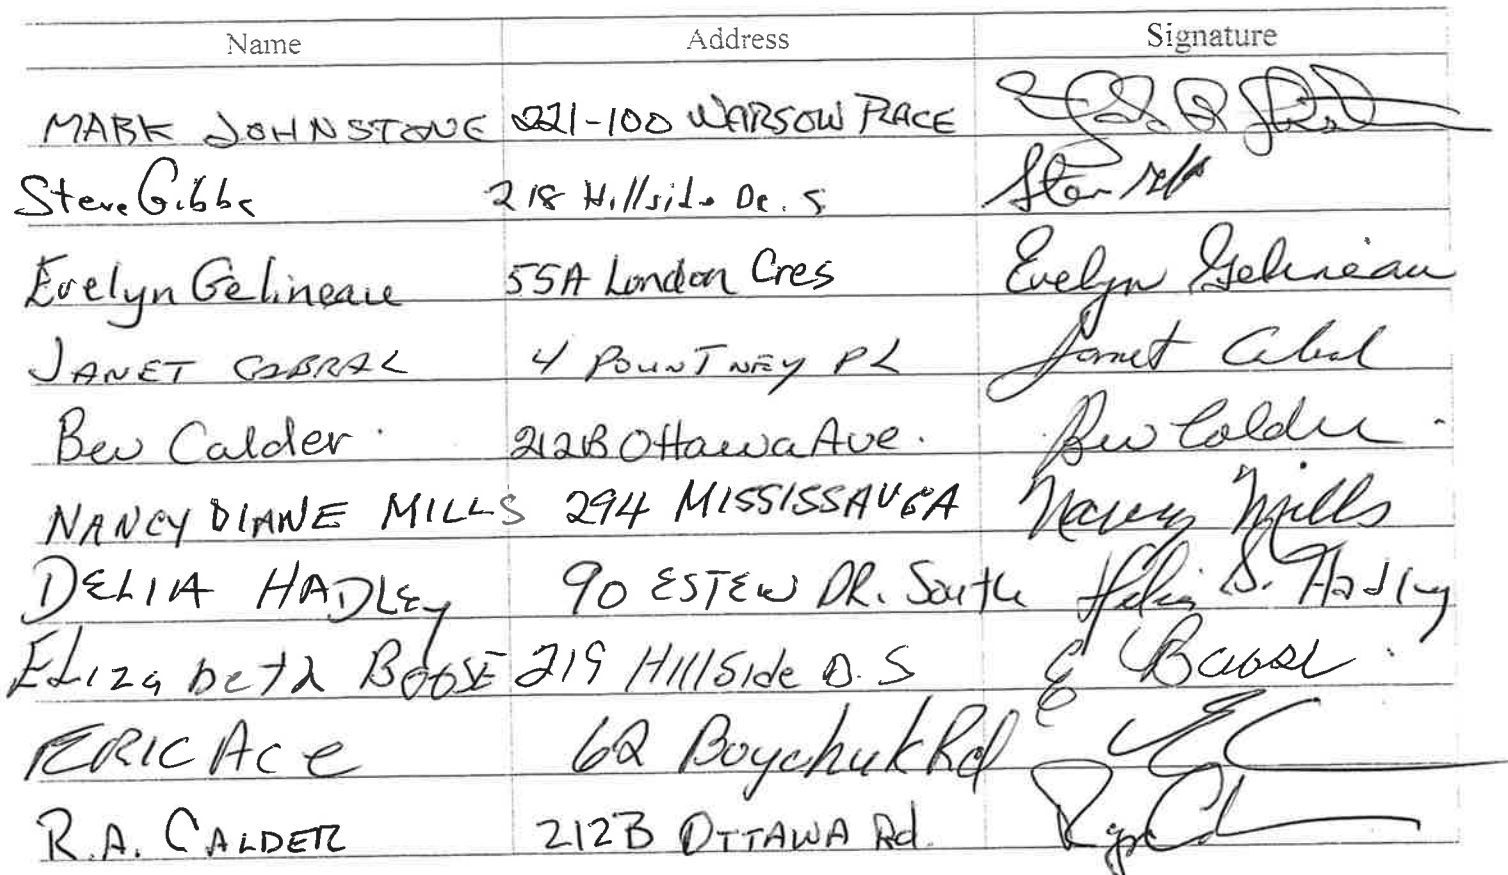 Name Address Signature
MARK JOHNSTONE 221-100 WARSOW PLACE
Steve Gibbs 218 Hillside Dr. S
Evelyn Gelineau 55A London Cres Evelyn Gelineau
JANET COBRAL 4 POUNTNEY PL Janet
Bev Calder 212B Ottawa Ave. Bev Calder
NANCY DIANE MILLS 294 MISSISSAUGA Nancy Mills
DELIA HADLEY 90 ESTEW DR. South Delia S. Hadley
Elizabeth BOOSE 219 Hillside D. S E Boose
ERIC Ace 62 Boychuk Rd
R.A. CALDER 212B OTTAWA Rd.